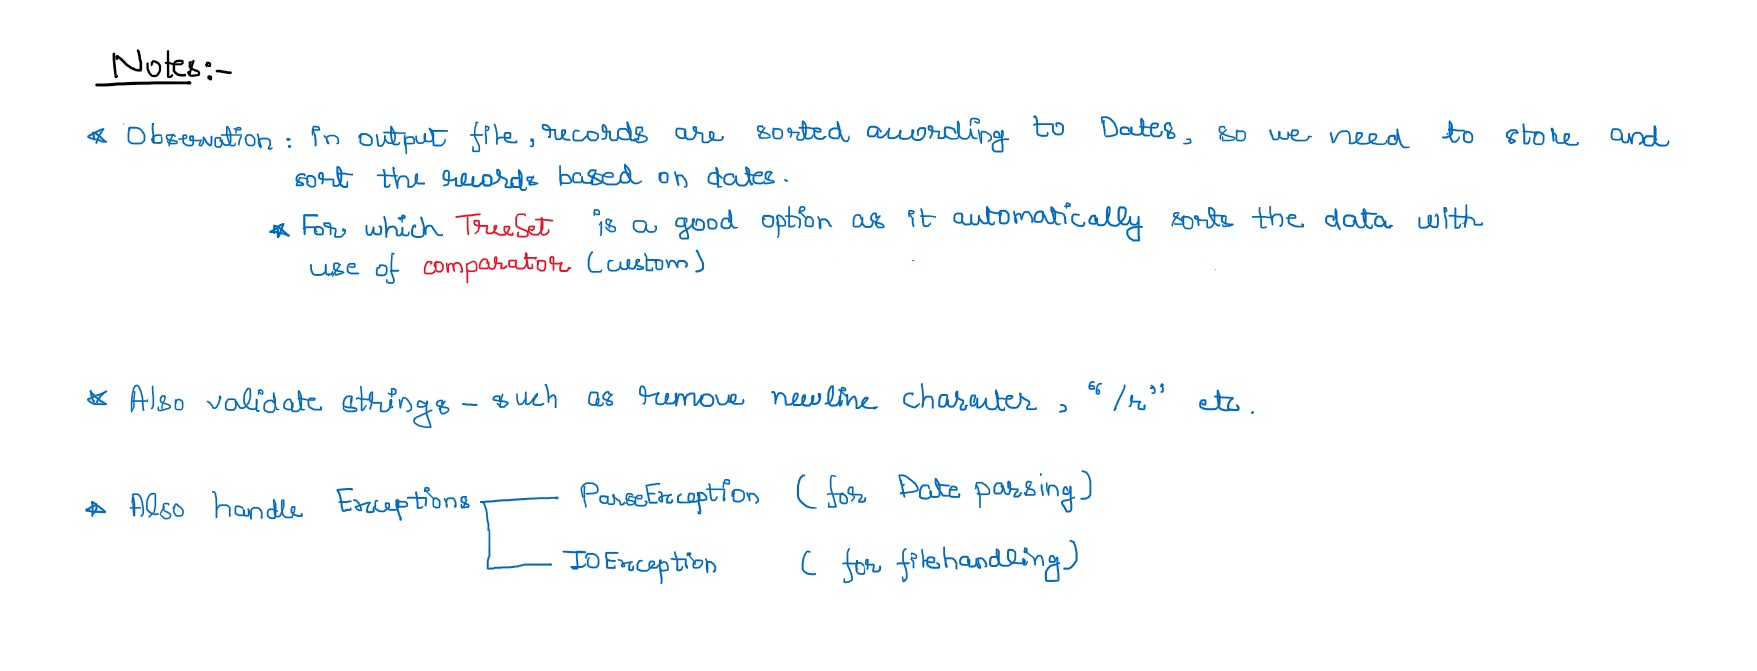 Notes:-
* Observation: in output file, records are sorted according to Dates, so we need to store and
sort the records based on dates.
* For which TreeSet is a good option as it automatically sorts the data with
use of comparator (custom)
* Also validate strings - such as remove newline character, "/r" etc.
* Also handle Exceptions ParseException (for Date parsing)
IOException (for filehandling)